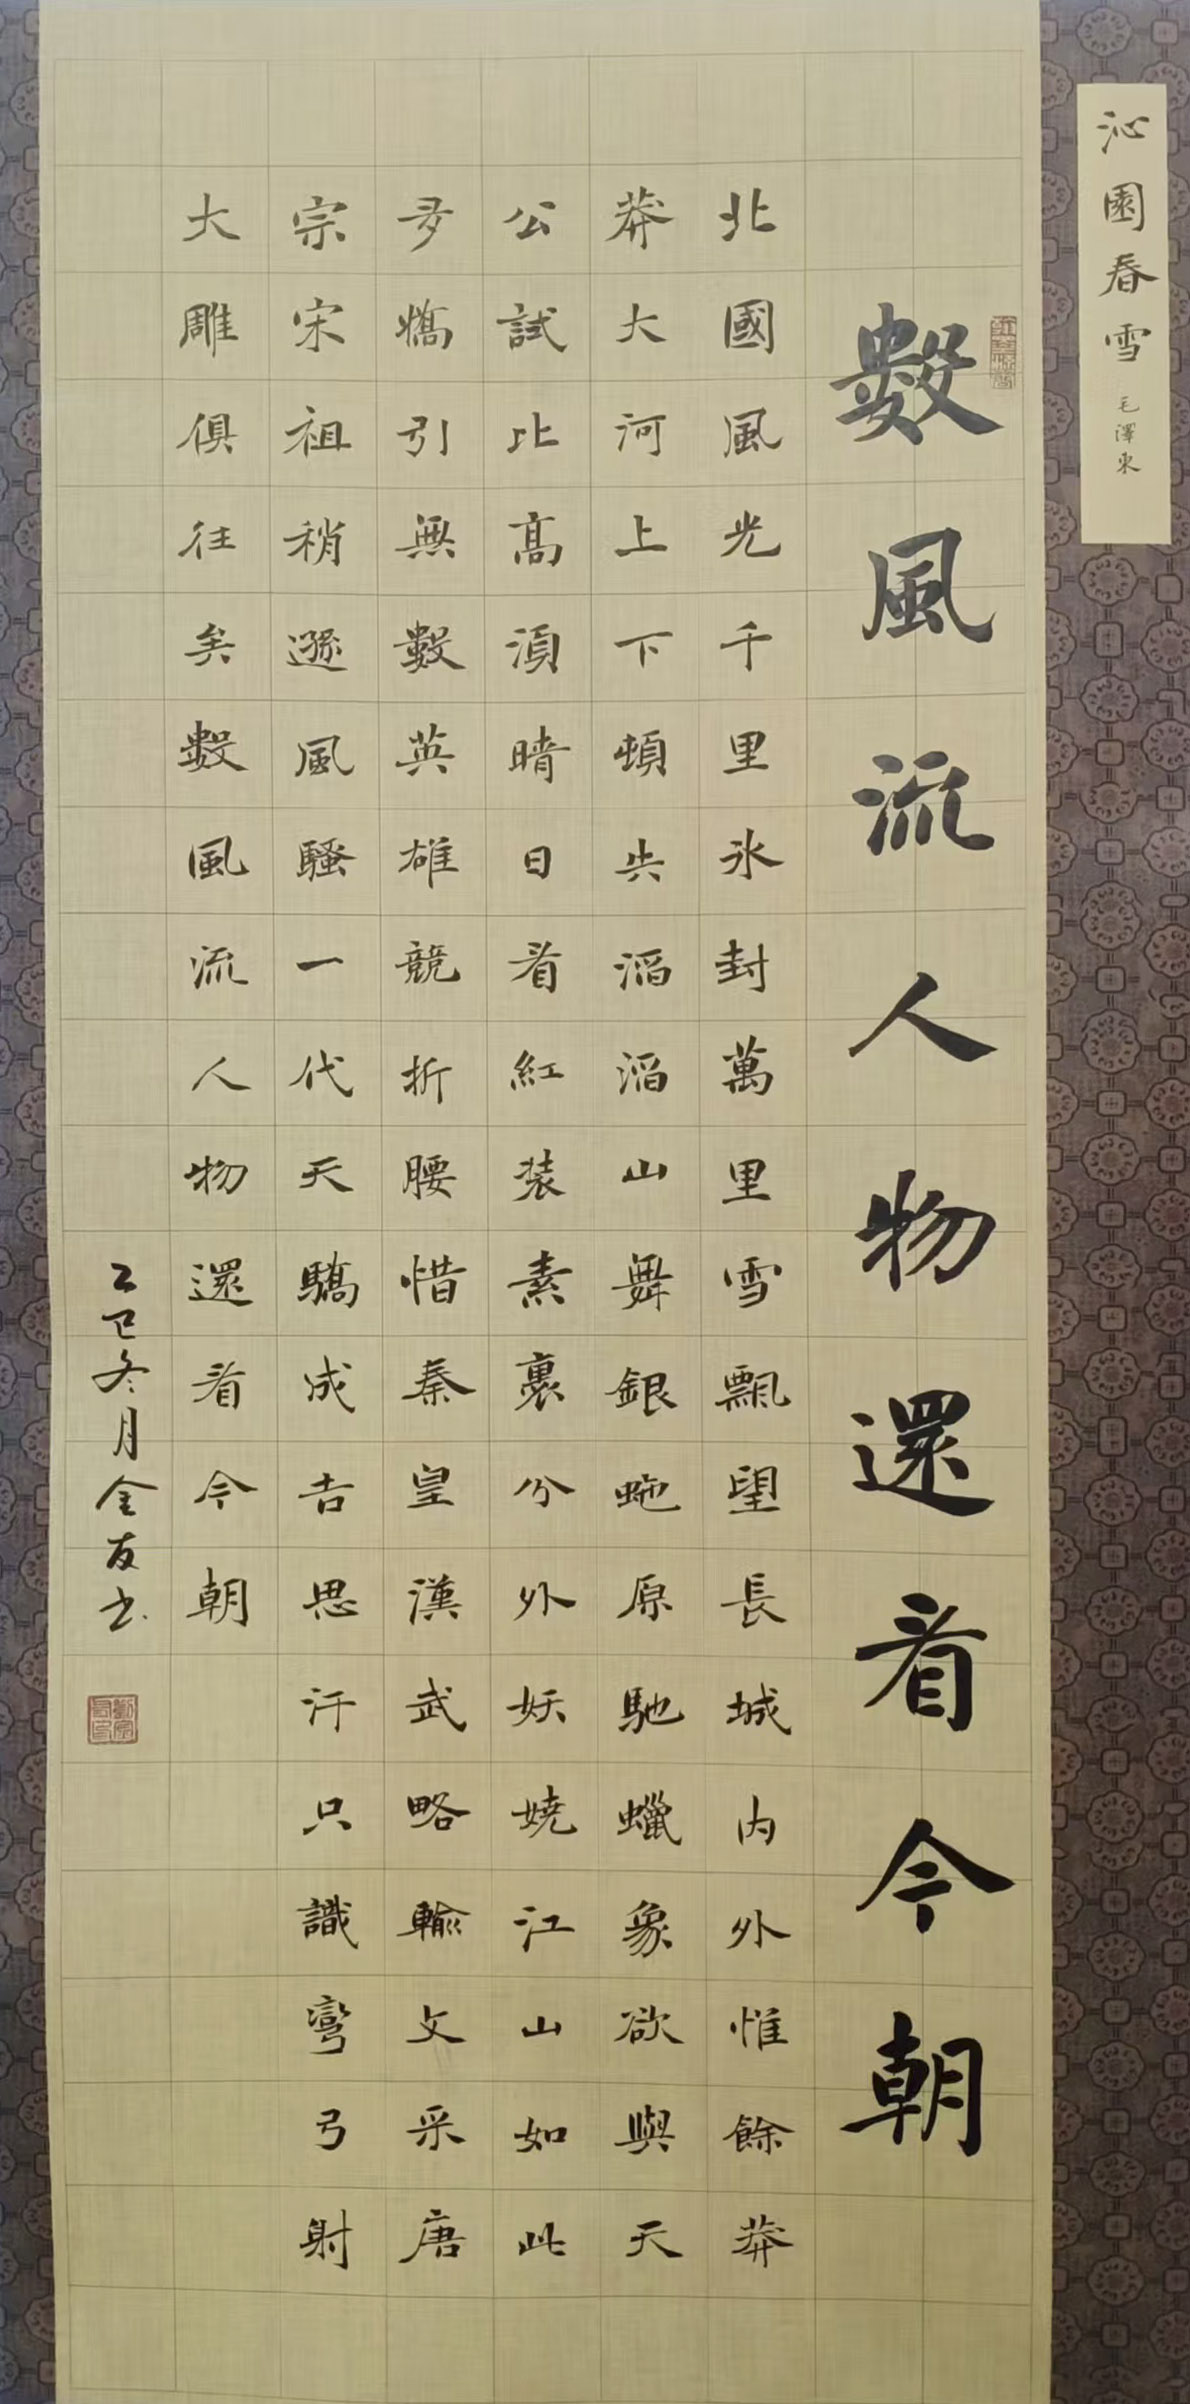 沁園春雪 毛澤東
數風流人物還看今朝
北國風光千里氷封萬里雪飄望長城内外惟餘莽
莽大河上下頓失滔滔山舞銀虵原馳蠟象欲與天
公試比高須晴日看紅装素裹分外妖嬈江山如此
多嬌引無數英雄競折腰惜秦皇漢武略輸文采唐
宗宋祖稍遜風騷一代天驕成吉思汗只識彎弓射
大雕俱往矣數風流人物還看今朝
乙巳冬月金友书